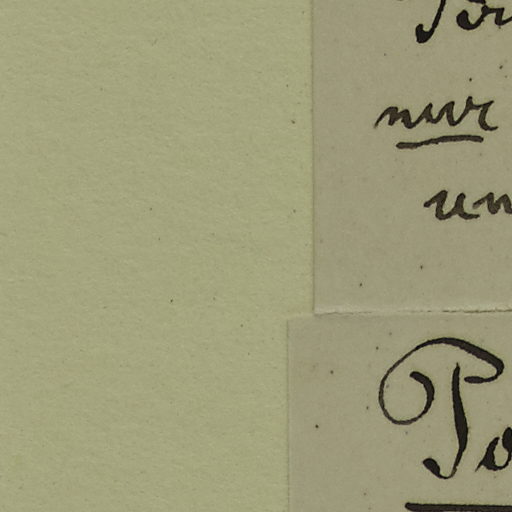 nur
un
Po